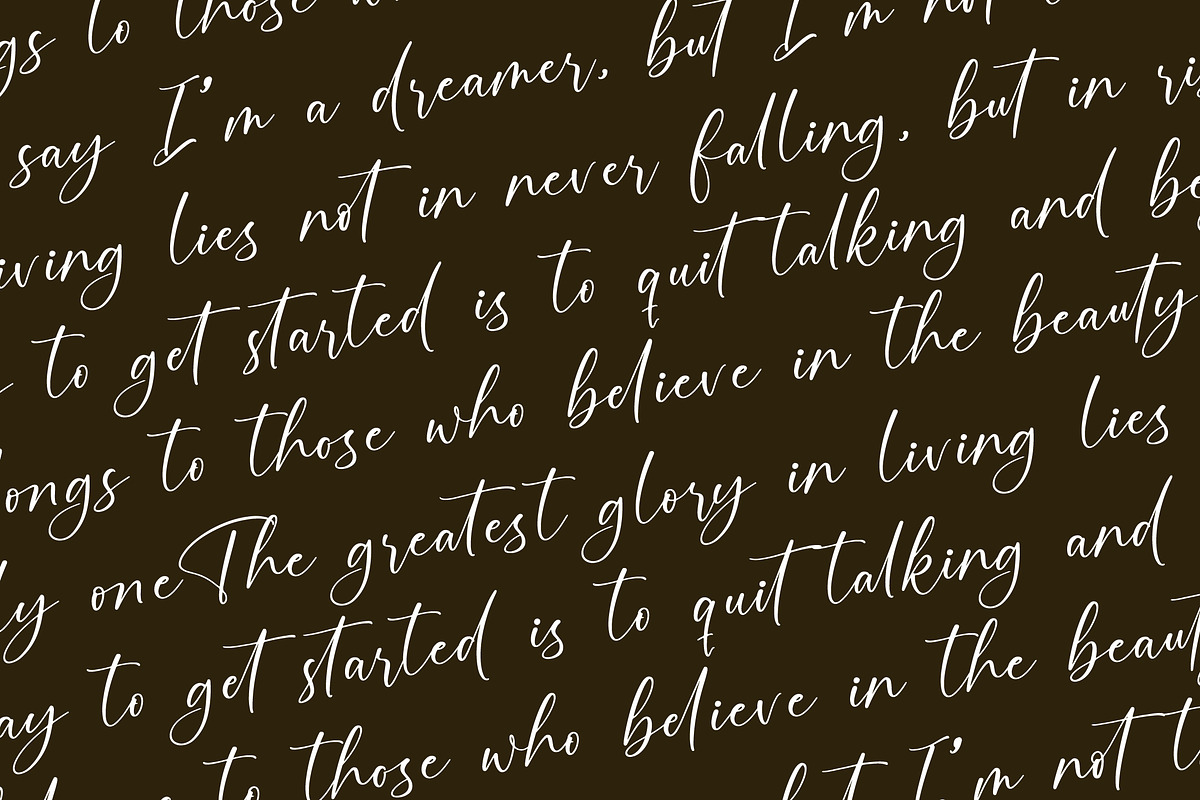 gs to those
say I'm a dreamer, but I'm not
iving lies not in never falling, but in ris
to get started is to quit talking and be
ongs to those who believe in the beauty
ly oneThe greatest glory in living lies
ay to get started is to quit talking and
to those who believe in the beaut
but I'm not t